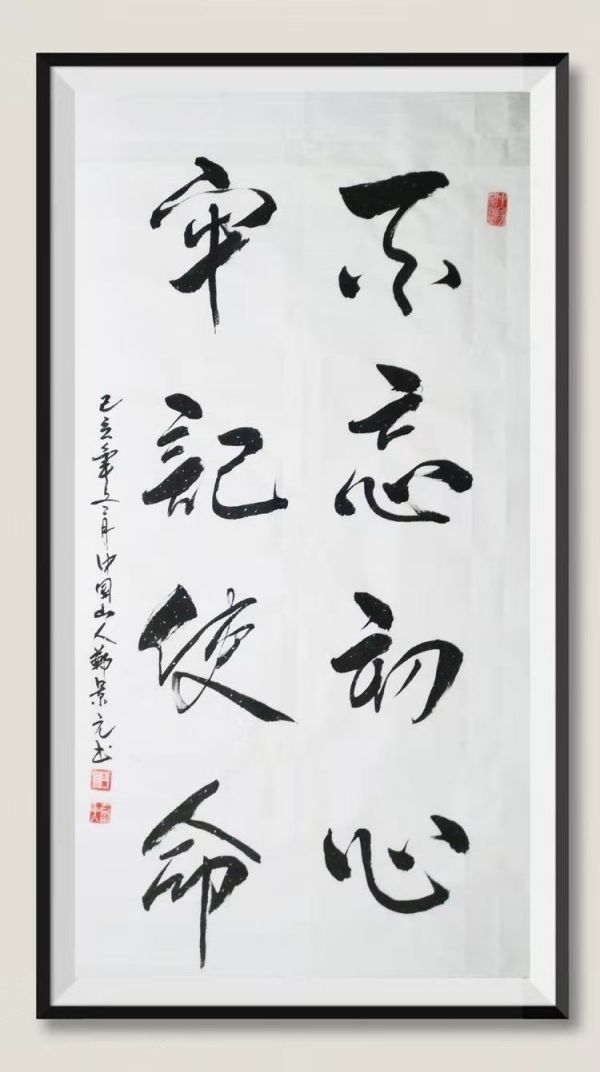 不忘初心
牢記使命
己亥年之二月中国山人鄭景元书